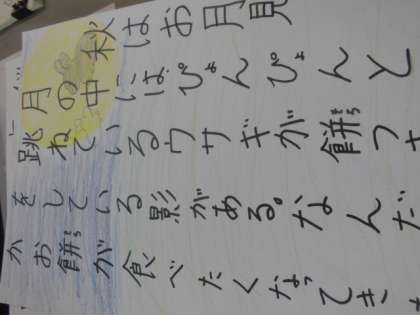 秋はお月見
月の中にはぴょんぴょんと
跳ねているウサギが餅つ
をしている影がある。なんだ
かお餅が食べたくなってき